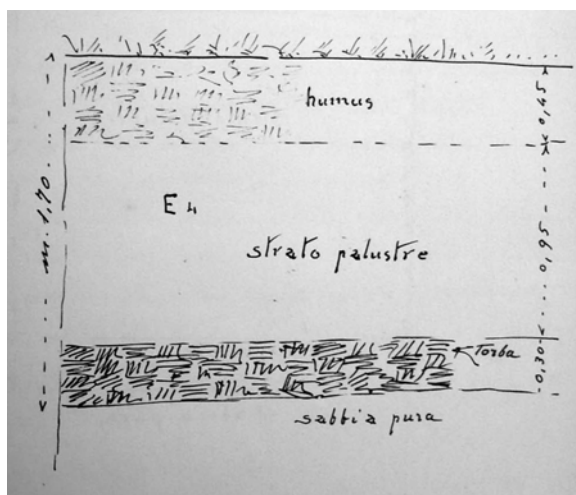 humus
0,45
m. 1,70
E 4
strato palustre
0,95
Torba
0,30
sabbia pura